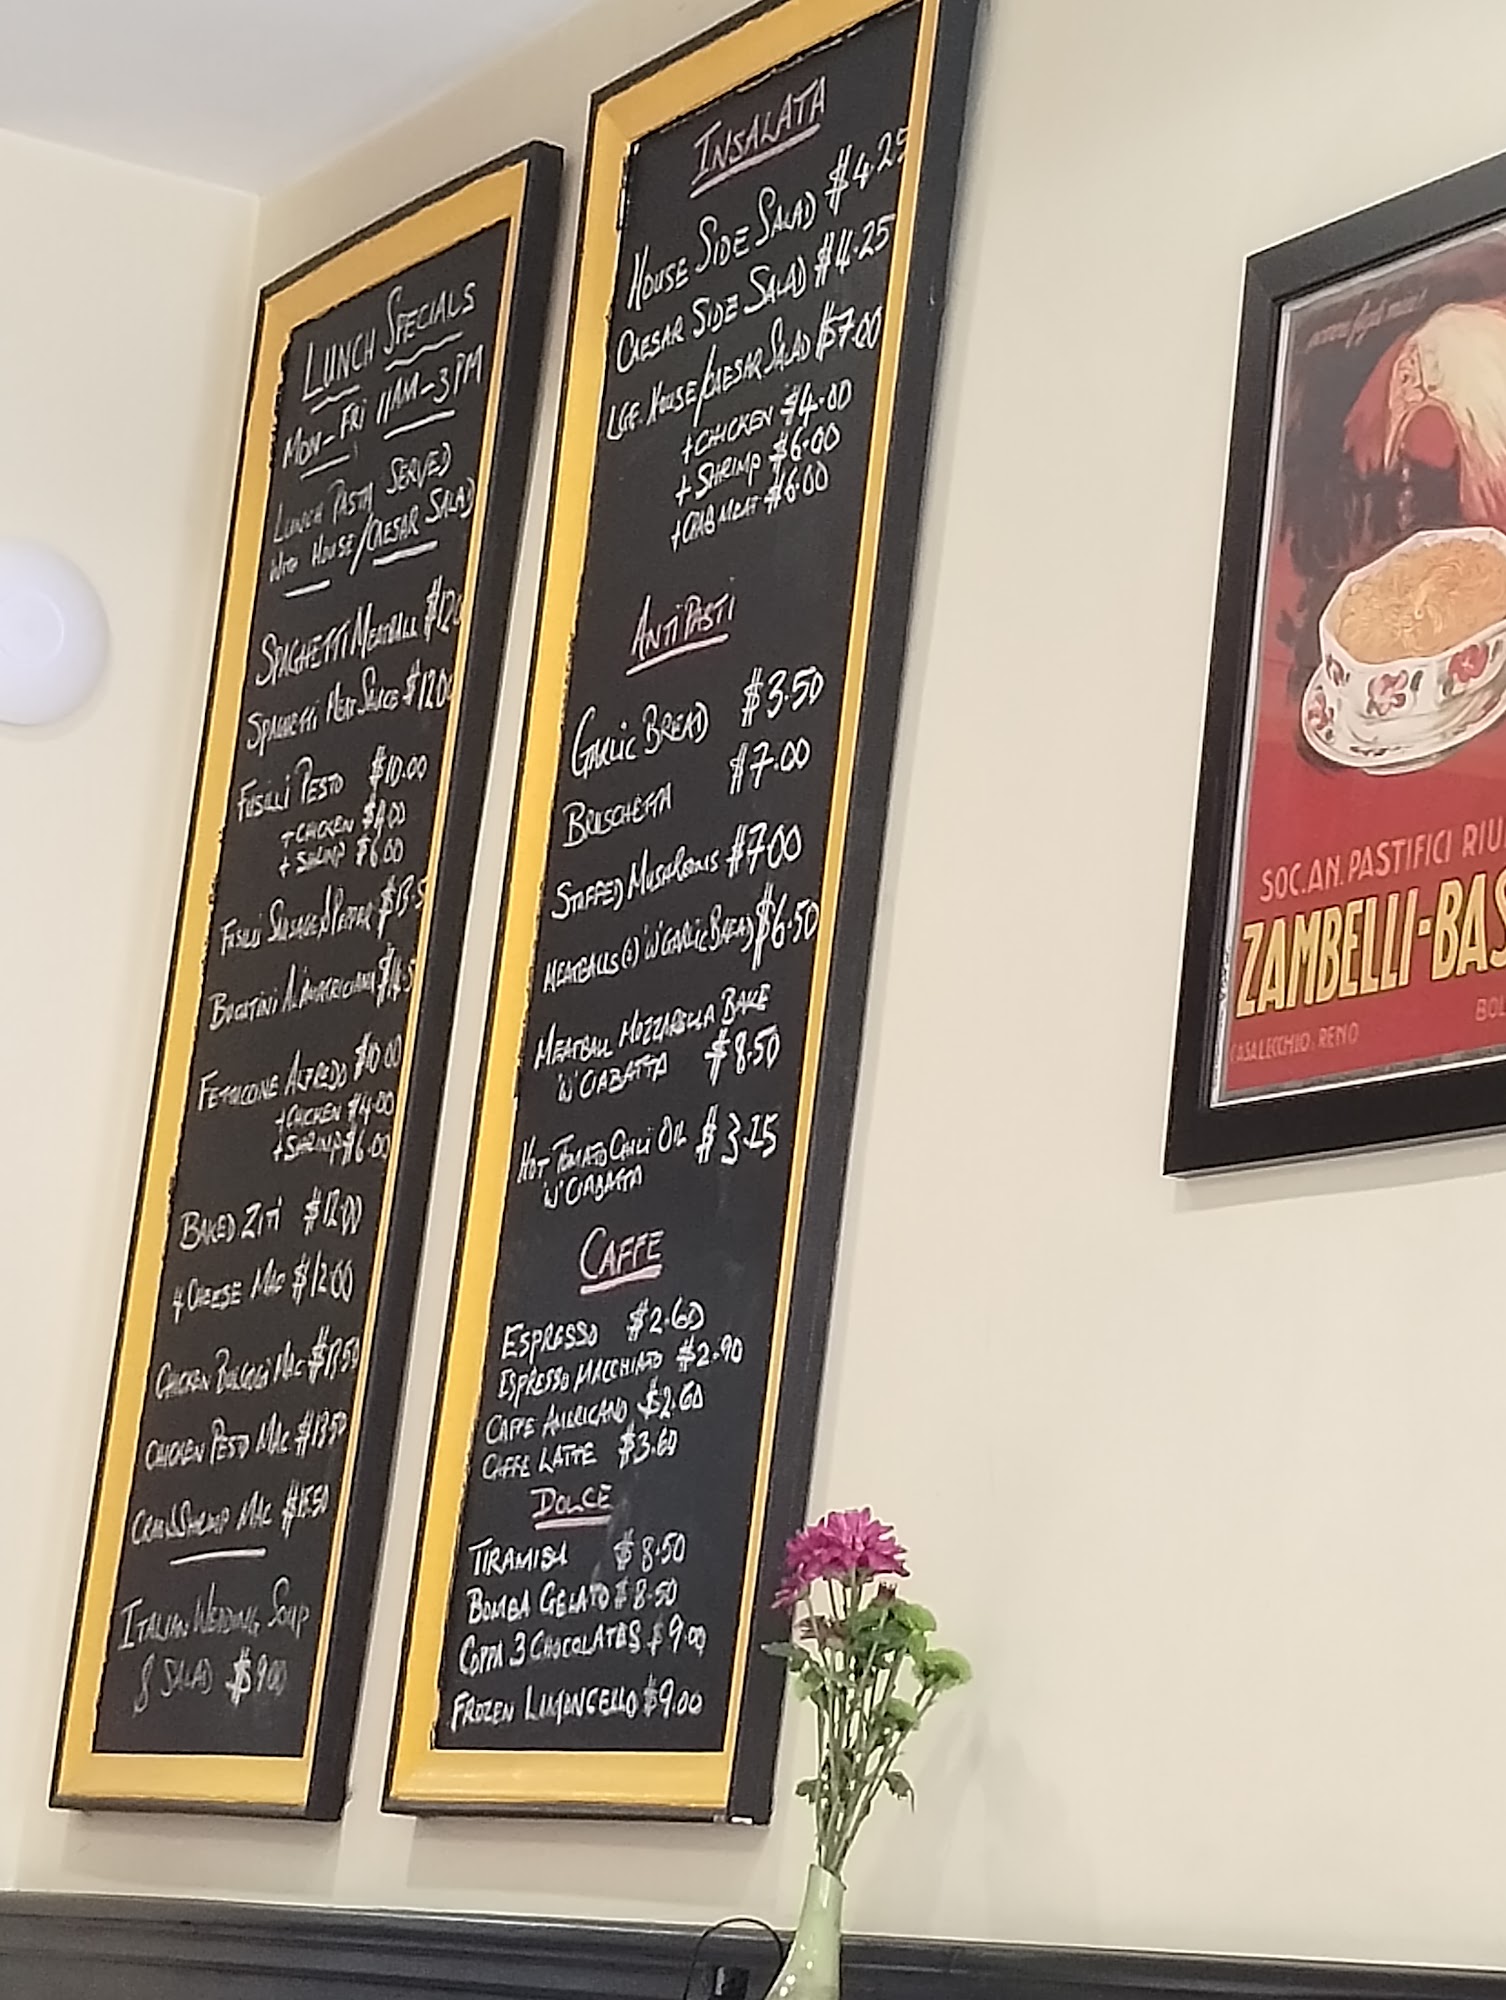 LUNCH SPECIALS
MON-FRI 11AM-3PM
LUNCH PASTA SERVED
WITH HOUSE/CAESAR SALAD
SPAGHETTI MEATBALL
SPAGHETTI MEAT SAUCE
FUSILLI PESTO $10.00
+CHICKEN $4.00
+ SHRIMP $6.00
FUSILLI SAUSAGE & PEPPER
BUCATINI
FETTUCCINE ALFREDO $10.00
+CHICKEN $4.00
+SHRIMP $6.00
BAKED ZITI $12.00
4 CHEESE MAC $12.00
CHICKEN BULGOGI MAC $13.50
CHICKEN PESTO MAC $13.50
CRAB & SHRIMP MAC $15.50
ITALIAN WEDDING SOUP
& SALAD $9.00
INSALATA
HOUSE SIDE SALAD $4.25
CAESAR SIDE SALAD $4.25
LGE. HOUSE/CAESAR SALAD $7.00
+CHICKEN $4.00
+ SHRIMP $6.00
+CRAB MEAT $6.00
ANTIPASTI
GARLIC BREAD $3.50
BRUSCHETTA $7.00
STUFFED MUSHROOMS $7.00
MEATBALLS (2) 'W' GARLIC BREAD $6.50
MEATBALL MOZZARELLA BAKE
'W' CIABATTA $8.50
HOT TOMATO CHILI OIL $3.25
'W' CIABATTA
CAFFE
ESPRESSO $2.60
ESPRESSO MACCHIATO $2.90
CAFFE AMERICANO $2.60
CAFFE LATTE $3.60
DOLCE
TIRAMISU $8.50
BOMBA GELATO $8.50
COPPA 3 CHOCOLATES $9.00
FROZEN LIMONCELLO $9.00
SOC.AN. PASTIFICI RIU
ZAMBELLI-BAS
BOL
CASALECCHIO. RENO